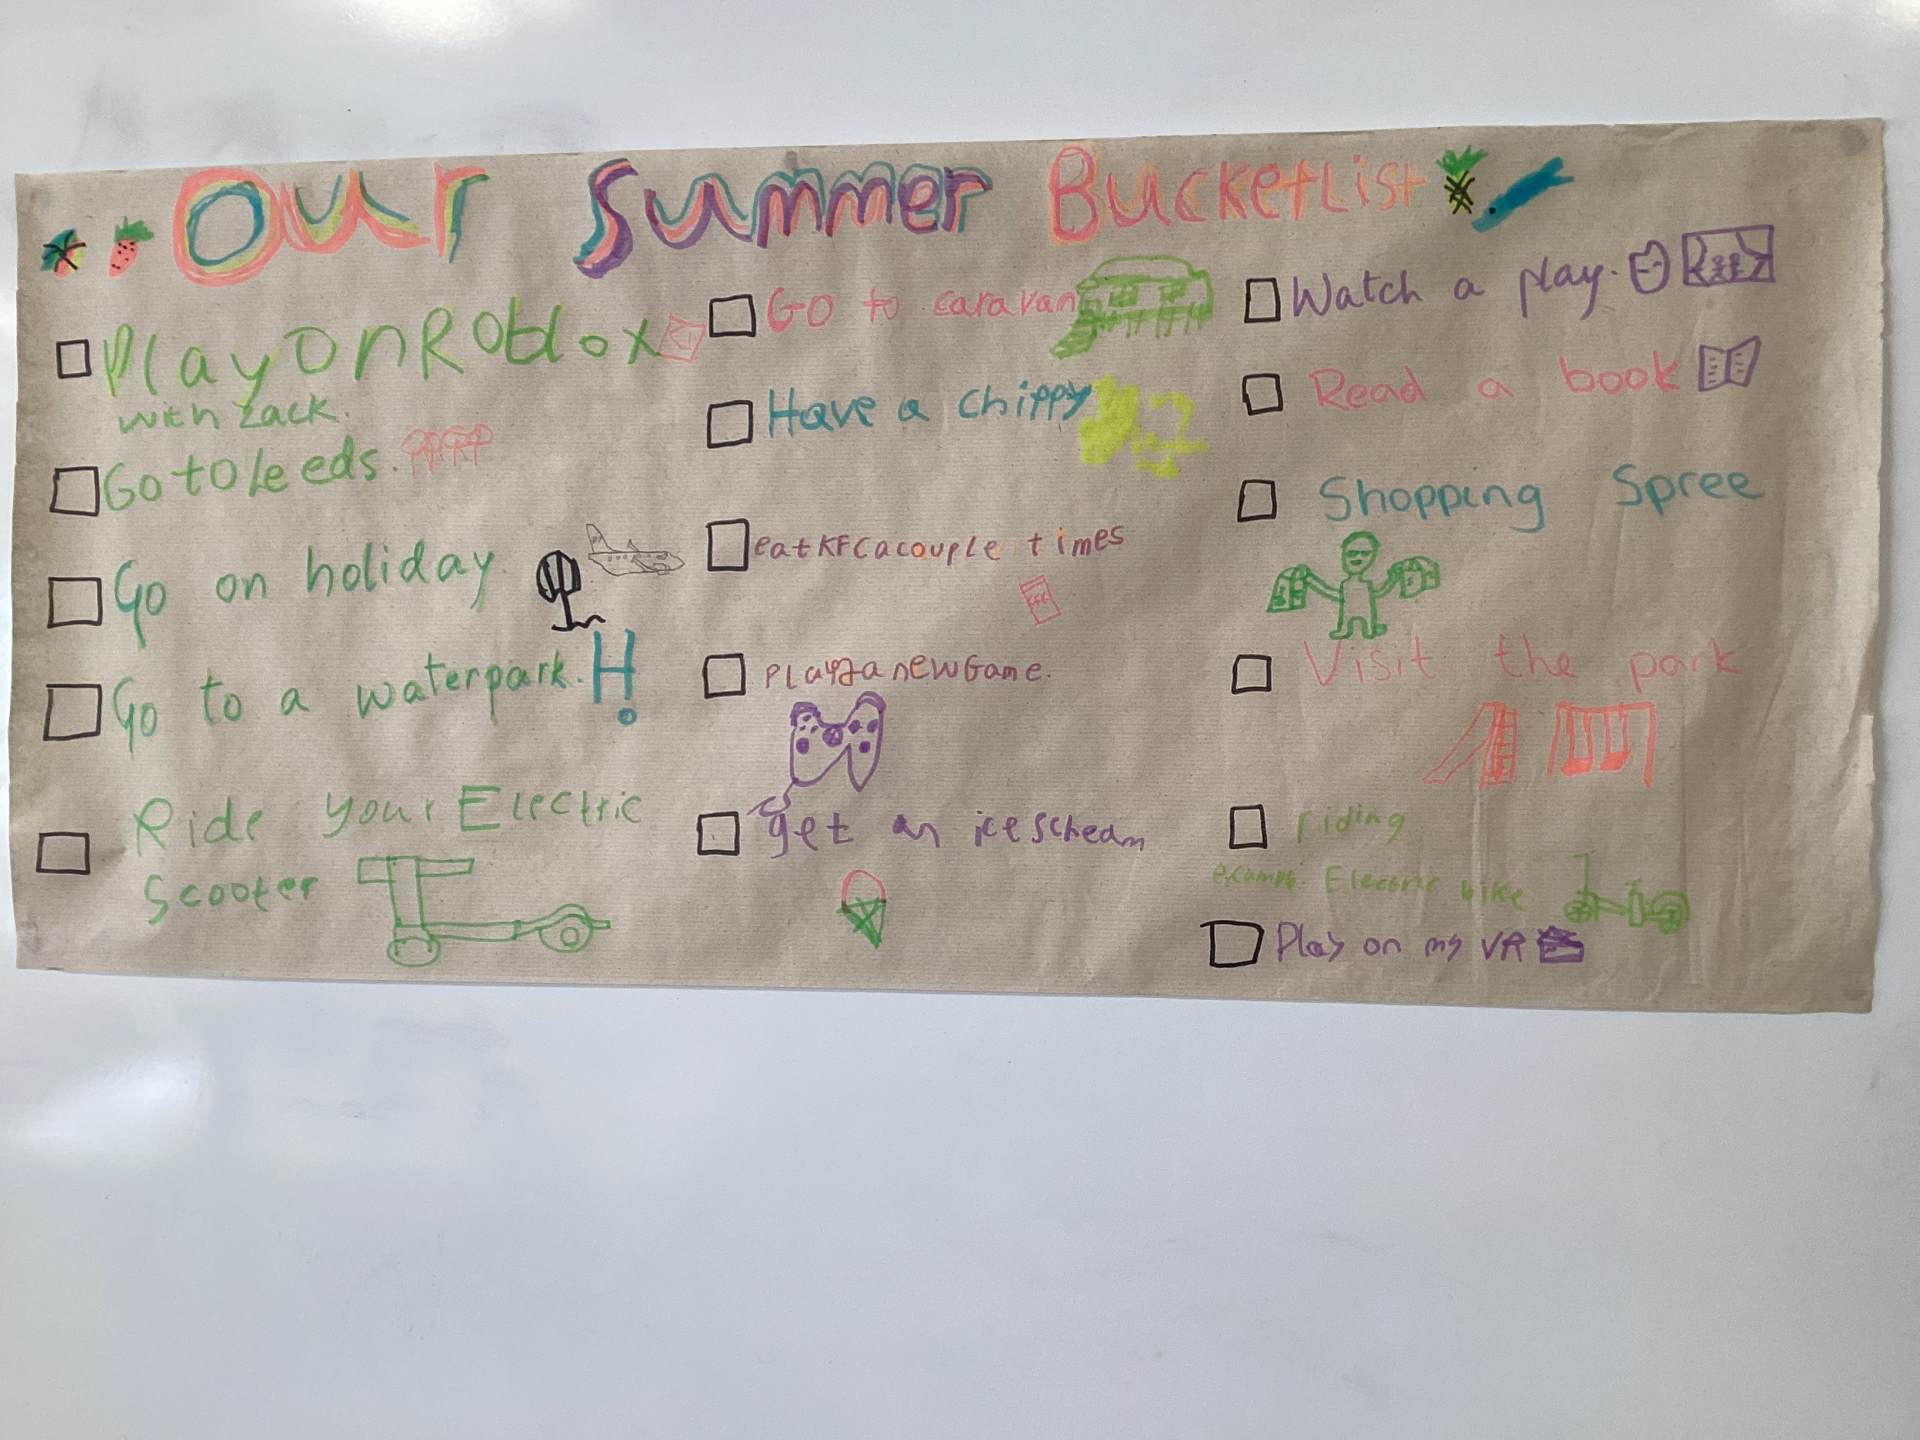 Our Summer BucketList
Play on Roblox
with zack.
Go to Leeds.
Go on holiday
Go to a waterpark.
Ride your Electric
Scooter
Go to caravan
Have a chippy
eat KFC a couple times
KFC
a new Game.
get an ice scheam
Watch a play.
Read a book
Shopping Spree
Visit the park
riding
Electric bike
Play on my VR